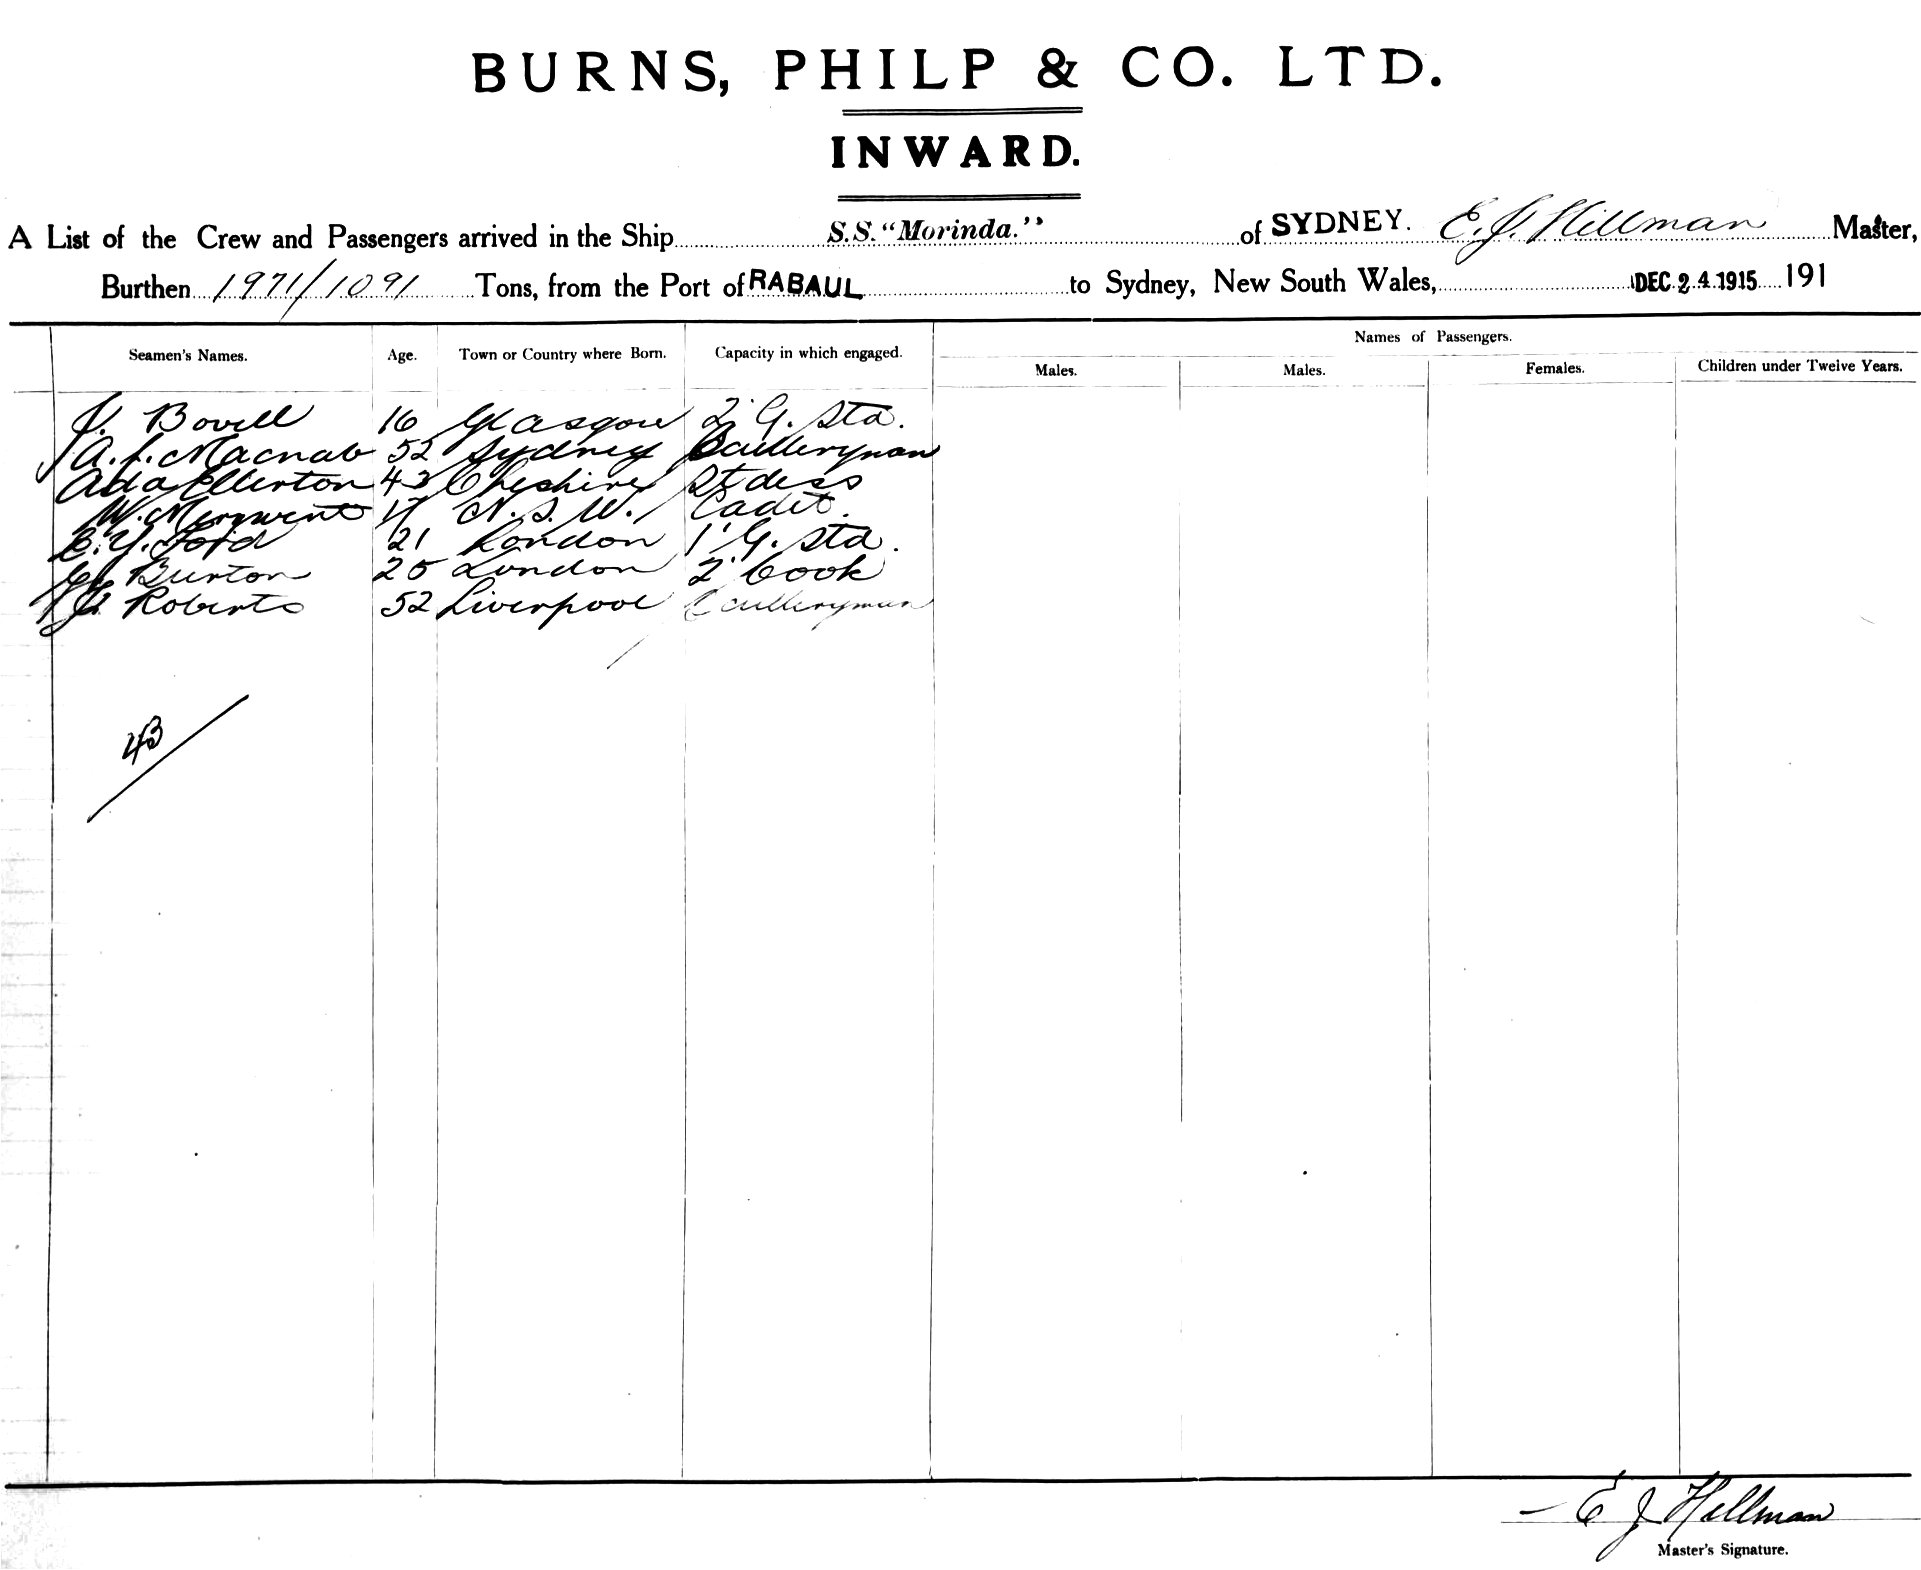 BURNS, PHILP & CO. LTD.
INWARD.
A List of the Crew and Passengers arrived in the Ship S.S. "Morinda." of SYDNEY. E. J. Hillman Master,
Burthen 1971/1091 Tons, from the Port of RABAUL to Sydney, New South Wales, DEC 24 1915 191
Names of Passengers.
Seamen's Names. Age. Town or Country where Born. Capacity in which engaged. Males. Males. Females. Children under Twelve Years.
J. Bovell 16 Glasgow 2' G. Std.
A. L. Macnab 52 Sydney Sculleryman
Ada Ellerton 43 Cheshire Stdess
W. 17 N. S. W. Cadet.
Ford 21 London 1' G. Std.
Burton 25 London 2' Cook
J. Roberts 52 Liverpool Sculleryman
43
E J Hillman
Master's Signature.